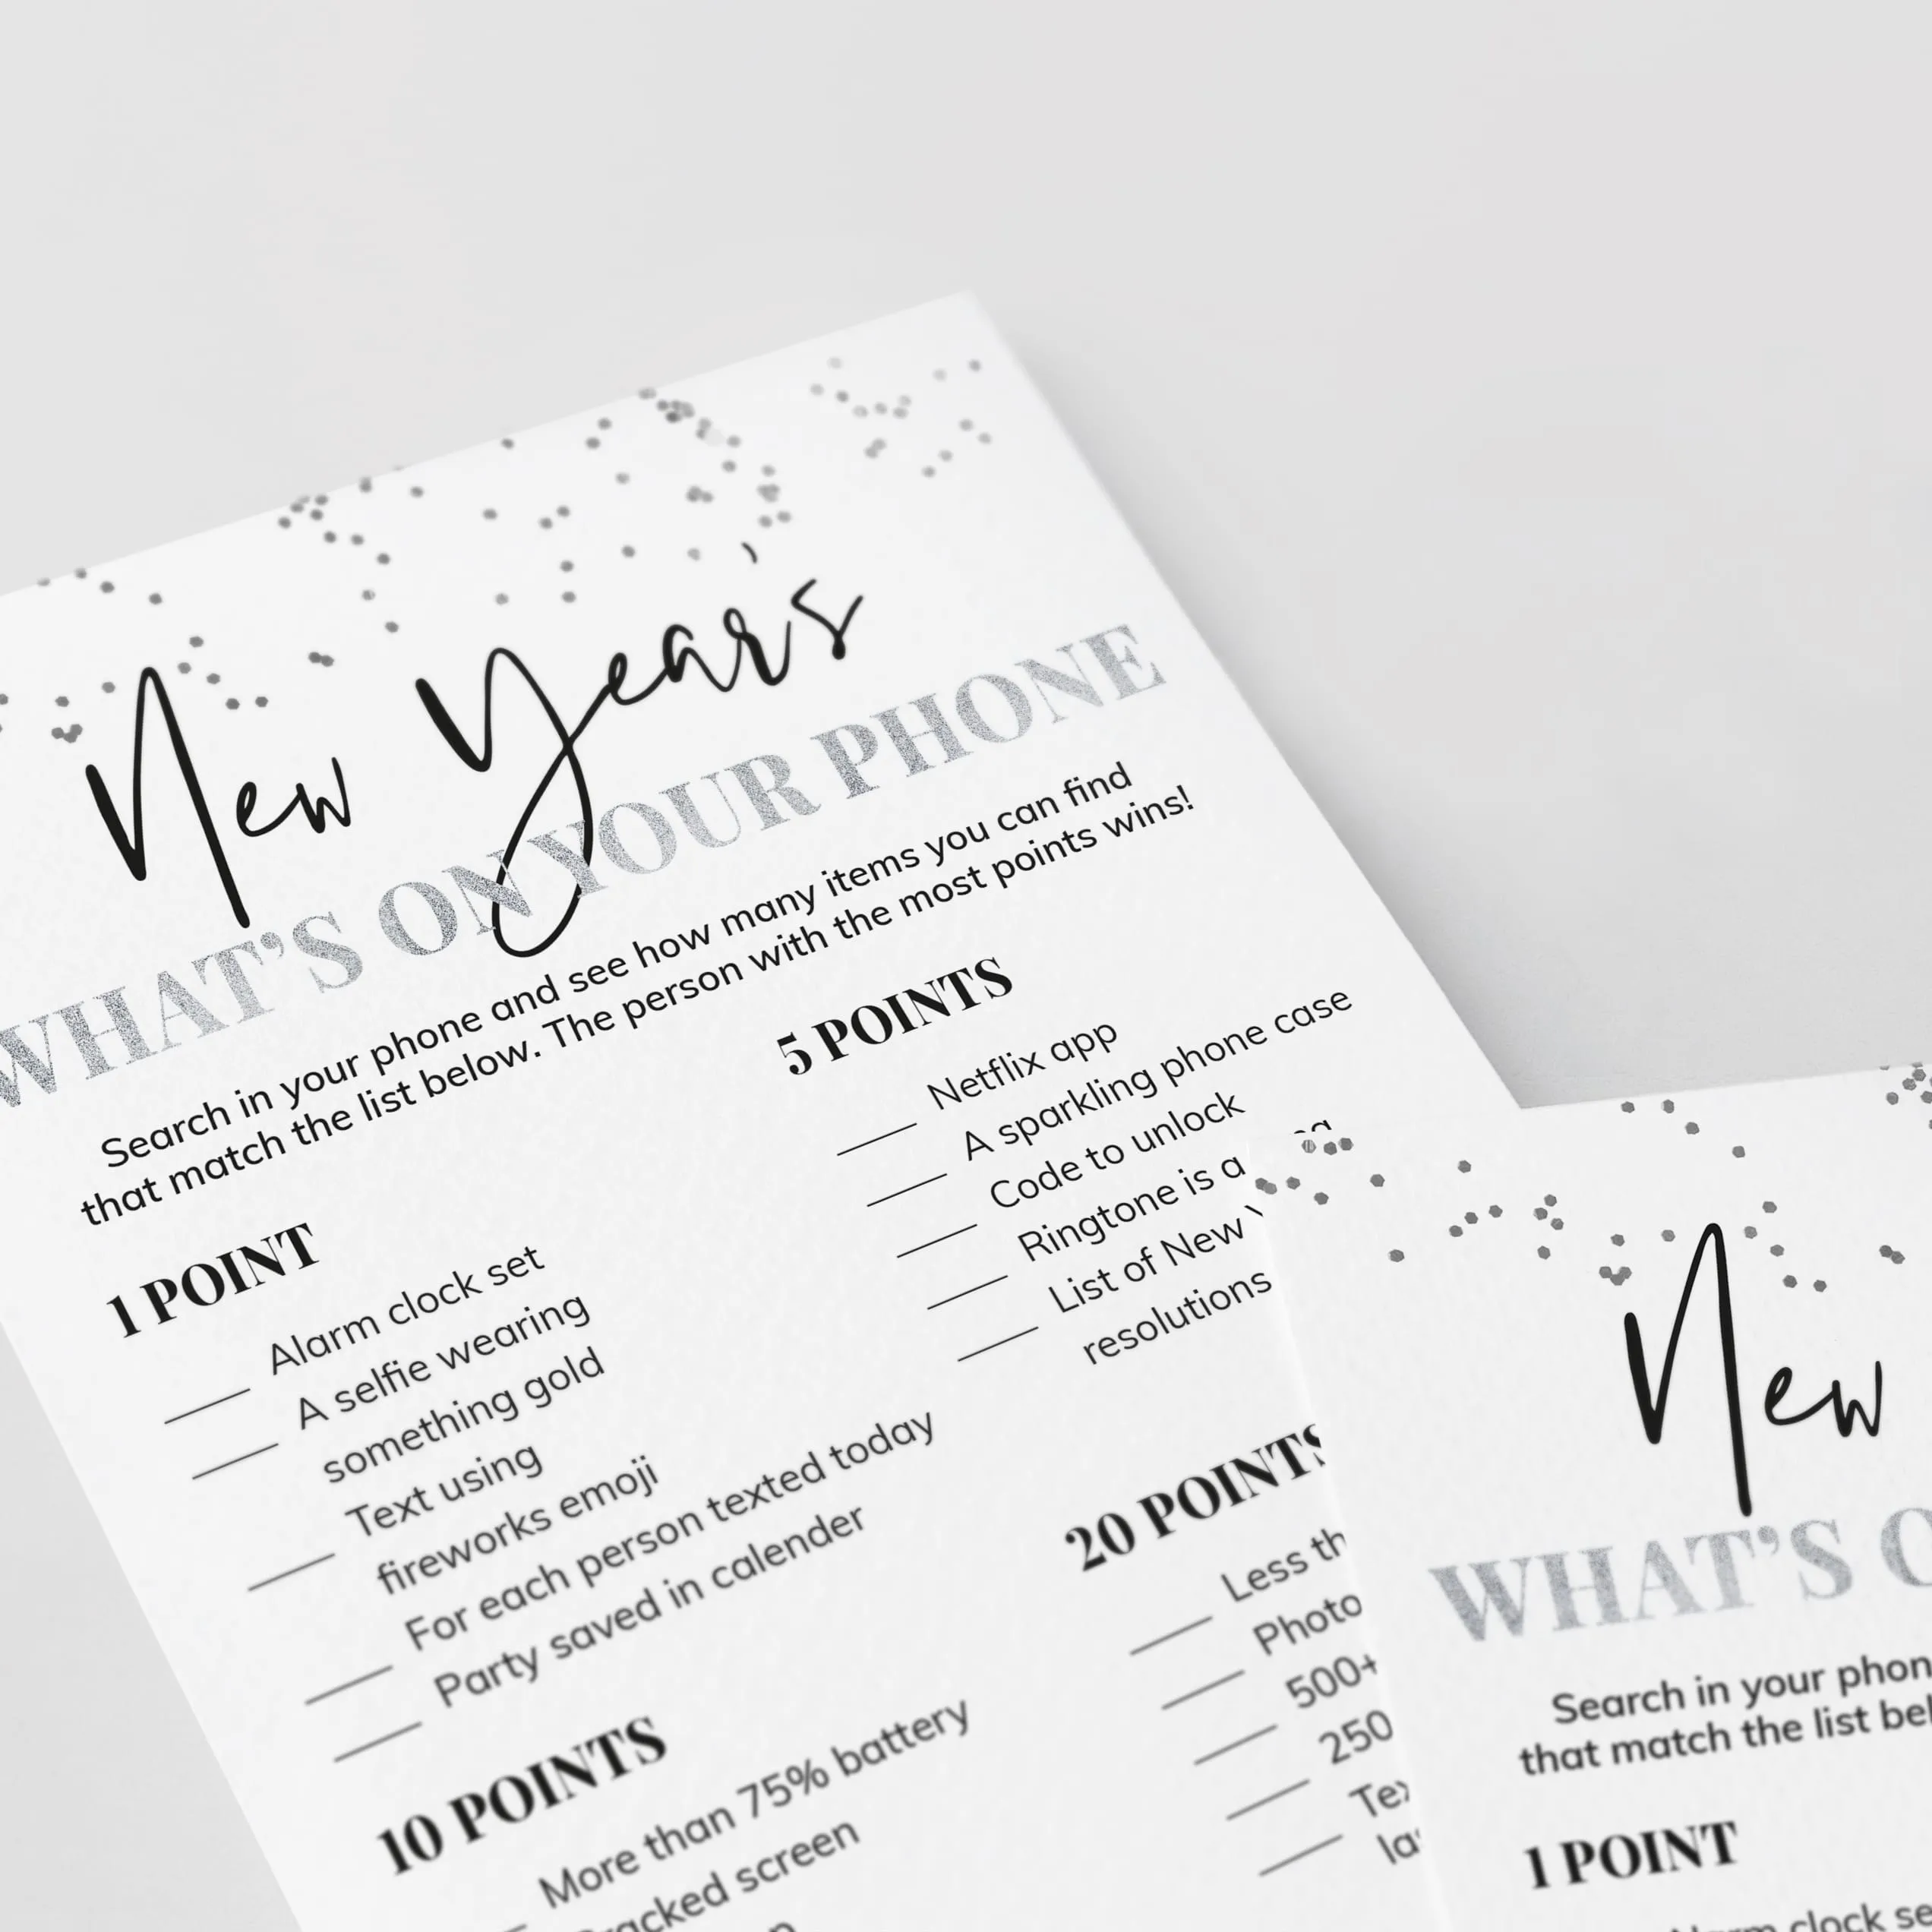 New Year's
WHAT'S ON YOUR PHONE
Search in your phone and see how many items you can find
that match the list below. The person with the most points wins!
1 POINT
Alarm clock set
A selfie wearing
something gold
Text using
fireworks emoji
For each person texted today
Party saved in calender
10 POINTS
More than 75% battery
screen
5 POINTS
Netflix app
A sparkling phone case
Code to unlock
Ringtone is a
List of New
resolutions
20 POINTS
Less
Photo
500+
250
New
WHAT'S
Search in your
that match the list
1 POINT
clock